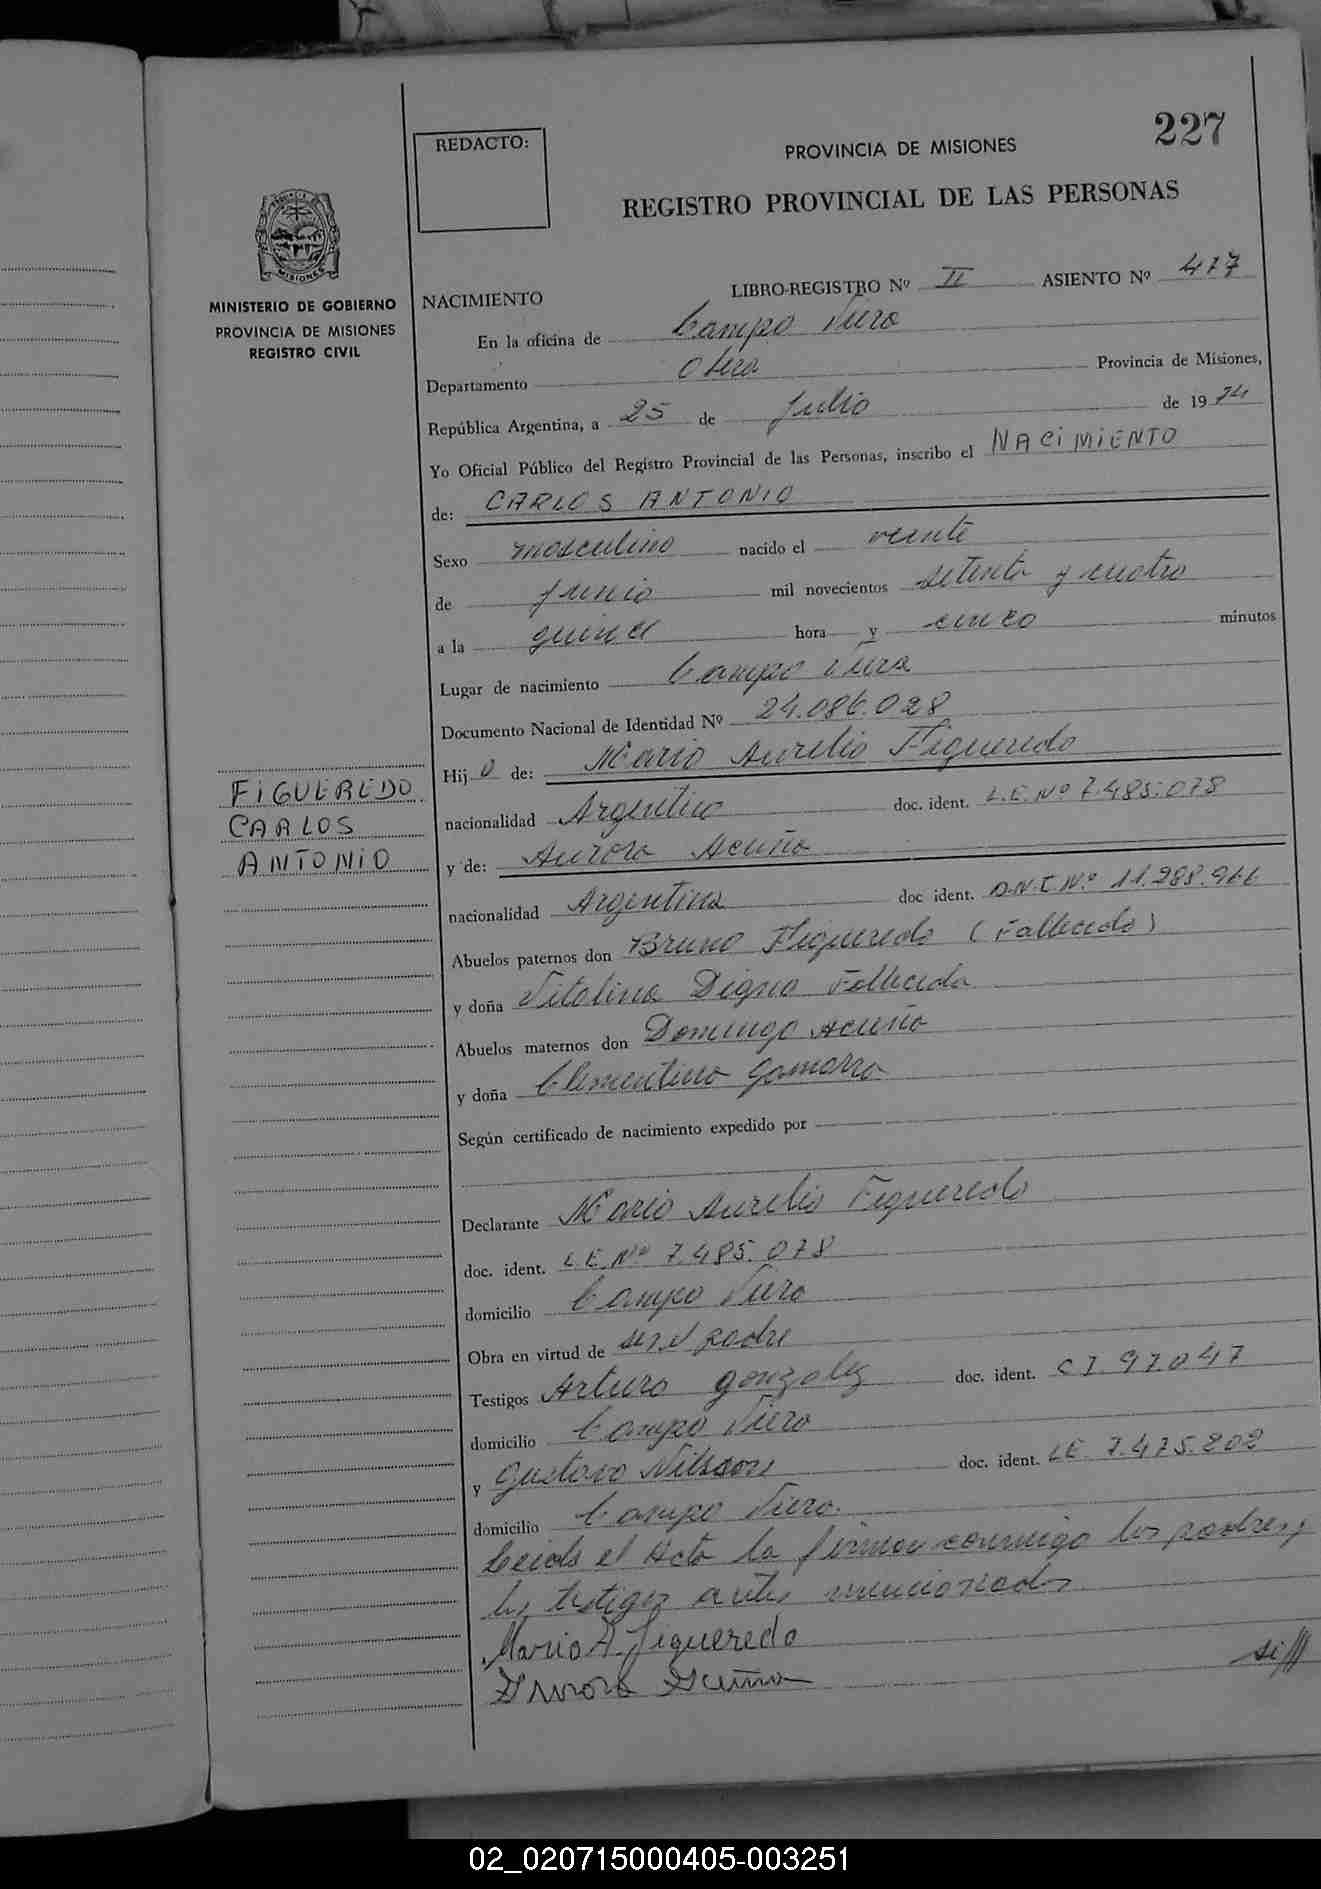 227
REDACTO:
PROVINCIA DE MISIONES
REGISTRO PROVINCIAL DE LAS PERSONAS
MISIONES
MINISTERIO DE GOBIERNO
PROVINCIA DE MISIONES
REGISTRO CIVIL
NACIMIENTO LIBRO-REGISTRO Nº II ASIENTO Nº 477
En la oficina de Campo Viera
Departamento Obera Provincia de Misiones,
República Argentina, a 25 de Julio de 1974
Yo Oficial Público del Registro Provincial de las Personas, inscribo el NACIMIENTO
de: CARLOS ANTONIO
Sexo masculino nacido el veinte
de Junio mil novecientos setenta y cuatro
a la quince hora y cinco minutos
Lugar de nacimiento Campo Viera
Documento Nacional de Identidad Nº 24.086.028
Hijo de: Mario Aurelio Figueredo
nacionalidad Argentino doc. ident. L.E. Nº 7.485.078
y de: Aurora Acuña
nacionalidad Argentina doc ident. D.N.I. Nº 11.288.966
Abuelos paternos don Bruno Figueredo (Fallecido)
y doña Vitalina Digna Fallecida
Abuelos maternos don Domingo Acuña
y doña Clementina Gamarra
Según certificado de nacimiento expedido por
Declarante Mario Aurelio Figueredo
doc. ident. L.E. Nº 7.485.078
domicilio Campo Viera
Obra en virtud de ser el padre
Testigos Arturo Gonzalez doc. ident. CI. 97047
domicilio Campo Viera
y Gustavo Nilsson doc. ident. LE. 7.475.202
domicilio Campo Viera.
Leida el Acta la firman conmigo los padres y
los testigos antes mencionados
Mario A. Figueredo
Aurora Acuña si///
FIGUEREDO
CARLOS
ANTONIO
02_020715000405-003251